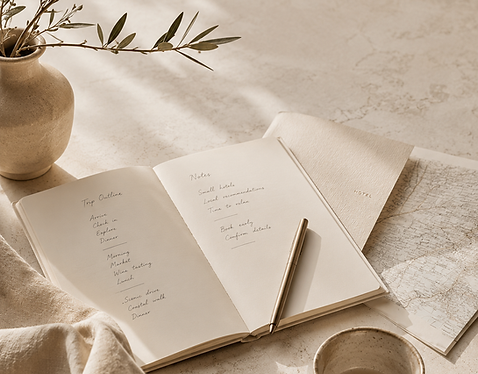 Trip Outline
Arrive
Check in
Explore
Dinner
Morning
Market
Wine tasting
Lunch
Scenic drive
Coastal walk
Dinner
Notes
Small hotels
Local recommendations
Time to relax
Book early
Confirm details
HOTEL